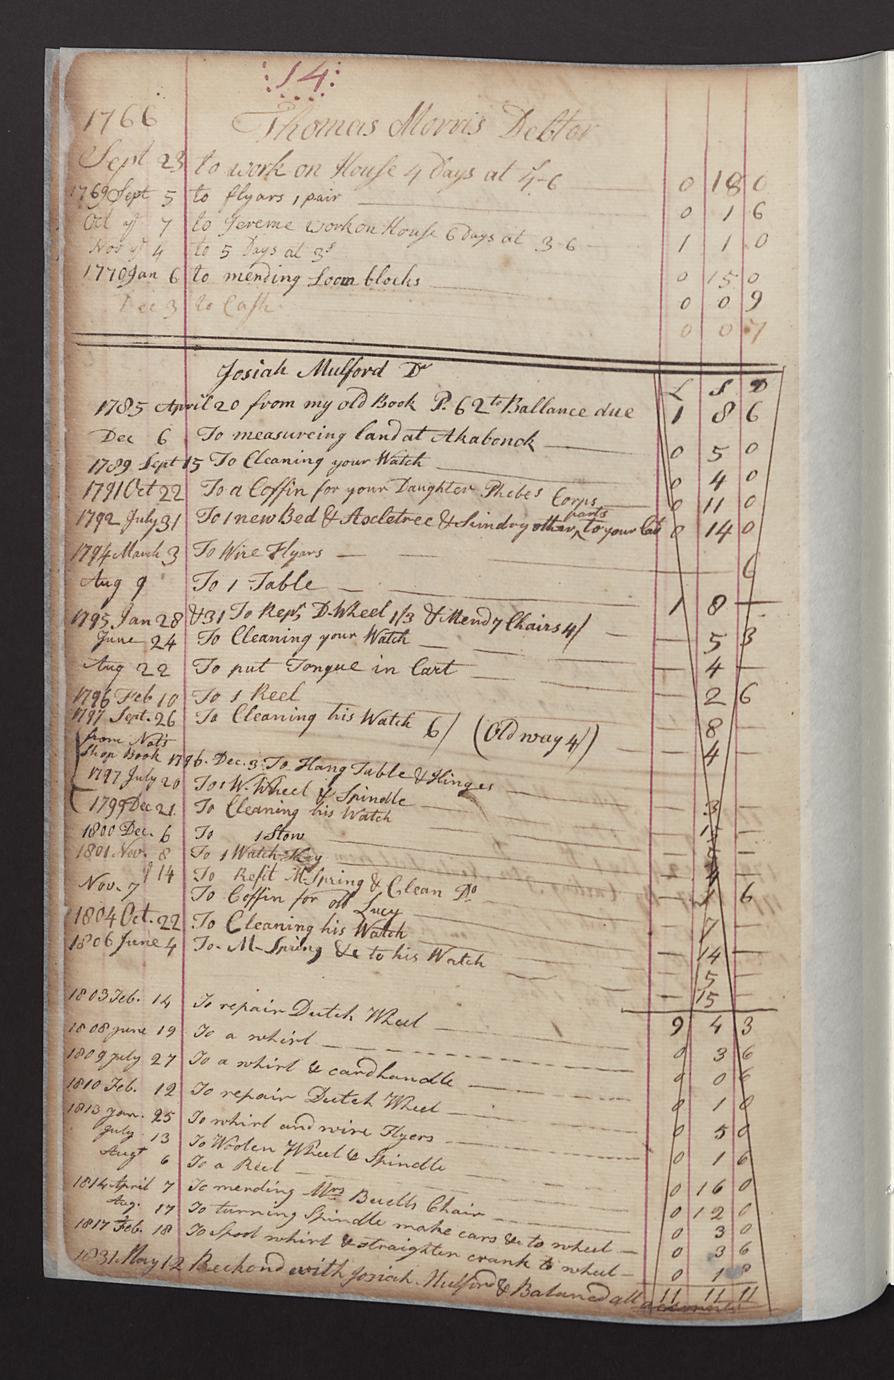 14
1766 Thomas Morris Debtor
Sept 23 to work on House 4 Days at 4-6 0 18 0
1769 Sept 5 to flyars 1 pair 0 1 6
Oct ye 7 to Jereme work on House 6 Days at 3-6 1 1 0
Nov ye 4 to 5 Days at 3s 0 15 0
1770 Jan 6 to mending Loom blocks 0 0 9
Dec 3 to Cash 0 0 7
Josiah Mulford Dr £ S D
1785 April 20 from my old Book P. 62 to Ballance due 1 8 6
Dec 6 To measureing land at Akabonck 0 5 0
1789 Sept 15 To Cleaning your Watch 0 4 0
1791 Oct 22 To a Coffin for your Daughter Phebes Corps 0 11 0
1792 July 31 To 1 new Bed & Axeletree & Sundry other parts to your Cart 0 14 0
1794 March 3 To Wire Flyars 6
Aug 9 To 1 Table 1 8 —
1795 Jan 28 & 31 To Repg D. Wheel 1/3 & Mendg Chairs 4/ — 5 3
June 24 To Cleaning your Watch — 4 —
Aug 22 To put Tongue in Cart — 2 6
1796 Feb 10 To 1 Reel — 8 —
1797 Sept. 26 To Cleaning his Watch 6/ (Old way 4/) — 4 —
from Nat's
Shop Book 1796. Dec. 3. To Hang Table & Hinges — 3 —
1797 July 20 To 1 W. Wheel & Spindle
1799 Dec 21 To Cleaning his Watch
1800 Dec. 6 To 1 Stow
1801 Nov. 8 To 1 Watch-Key 6
14 To Refit M. Spring & Clean Do — 7 —
Nov. 7 To Coffin for old Lucy — 14 —
1804 Oct. 22 To Cleaning his Watch — 5 —
1806 June 4 To M-Spring &c to his Watch — 15 —
9 4 3
1803 Feb. 14 To repair Dutch Wheel 0 3 6
1808 June 19 To a whirl 0 0 6
1809 July 27 To a whirl & cardhandle 0 1 0
1810 Feb. 12 To repair Dutch Wheel 0 5 0
1813 Jan. 25 To whirl and wire Flyers 0 1 6
July 13 To Woolen Wheel & Spindle 0 16 0
Augt 6 To a Reel 0 12 0
1814 April 7 To mending Mrs Buells Chair 0 3 0
Aug. 17 To turning Spindle make ears &c to wheel 0 3 6
1817 Feb. 18 To Spool whirl & straighten crank to wheel 0 1
11 11 11
1831 May 12 Reckond with Josiah Mulford & Balanced all accounts